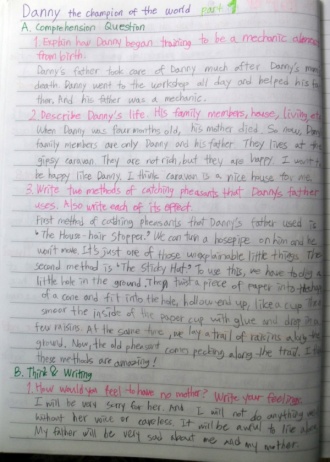 Danny the champion of the world part 1
A. Comprehension Question
1. Explain how Danny began training to be a mechanic almost
from birth.
Danny's father took care of Danny much after Danny's mom
death. Danny went to the workshop all day and helped his fa-
ther. And his father was a mechanic.
2. Describe Danny's life. His family members, house, living, etc
When Danny was four months old, his mother died. So now, Danny
family members are only Danny and his father. They lives at the
gipsy caravan. They are not rich, but they are happy. I want to
be happy like Danny. I think caravan is a nice house to me.
3. Write two methods of catching pheasants that Danny's father
uses. Also write each of its effect.
First method of cathing pheamsants that Danny's father used is
"The Hourse-hair Stopper." We can turn a hosepipe on him and he
won't move. It's just one of those unexplainable little things. The
second method is "The Sticky Hat." To use this, we have to dig a
little hole in the ground. Then twist a piece of paper into the shape
of a cone and fit into the hole, hollow-end up, like a cup. Then
smear the inside of the paper cup with glue and drop in a
few raisins. At the same time, we lay a trail of raisins along the
ground. Now, the old pheasant comes pecking along the trail. I think
these methods are amazing!
B. Think & Writing
1. How would you feel to have no mother? Write your feelings.
I will be very sorry for her. And I will not do anything
without her voice or careless. It will be awful to live
My father will be very sad about me and my mother.